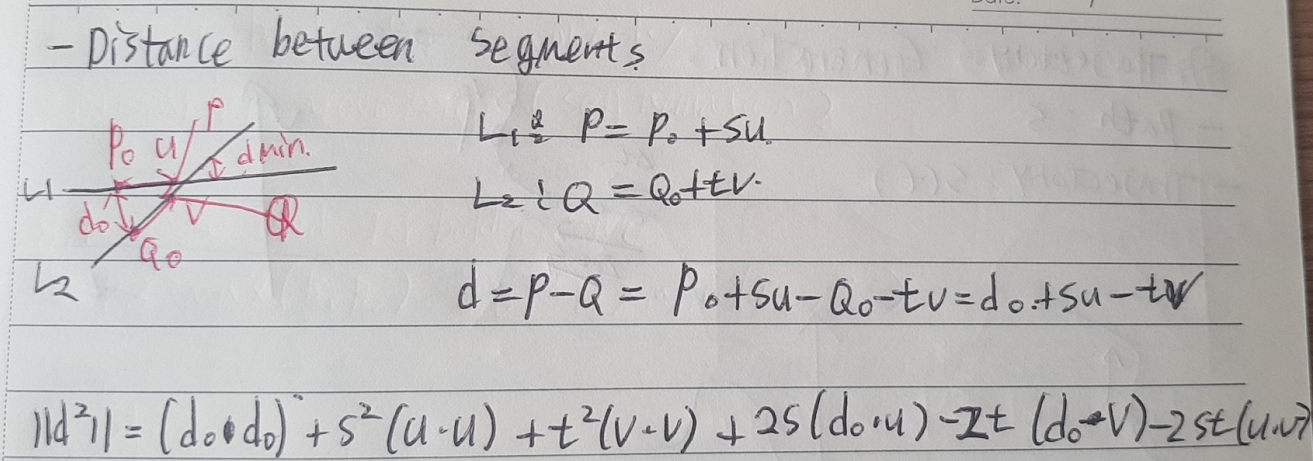 - Distance between segments
P
P₀ u dmin.
L₁: P = P₀ + su
L1
L₂ : Q = Q₀ + tv.
d₀ v Q
Q₀
L₂
d = P - Q = P₀ + su - Q₀ - tv = d₀ + su - tv
||d²|| = (d₀•d₀) + s²(u·u) + t²(v·v) + 2s(d₀·u) - 2t (d₀·v) - 2st(u·v)